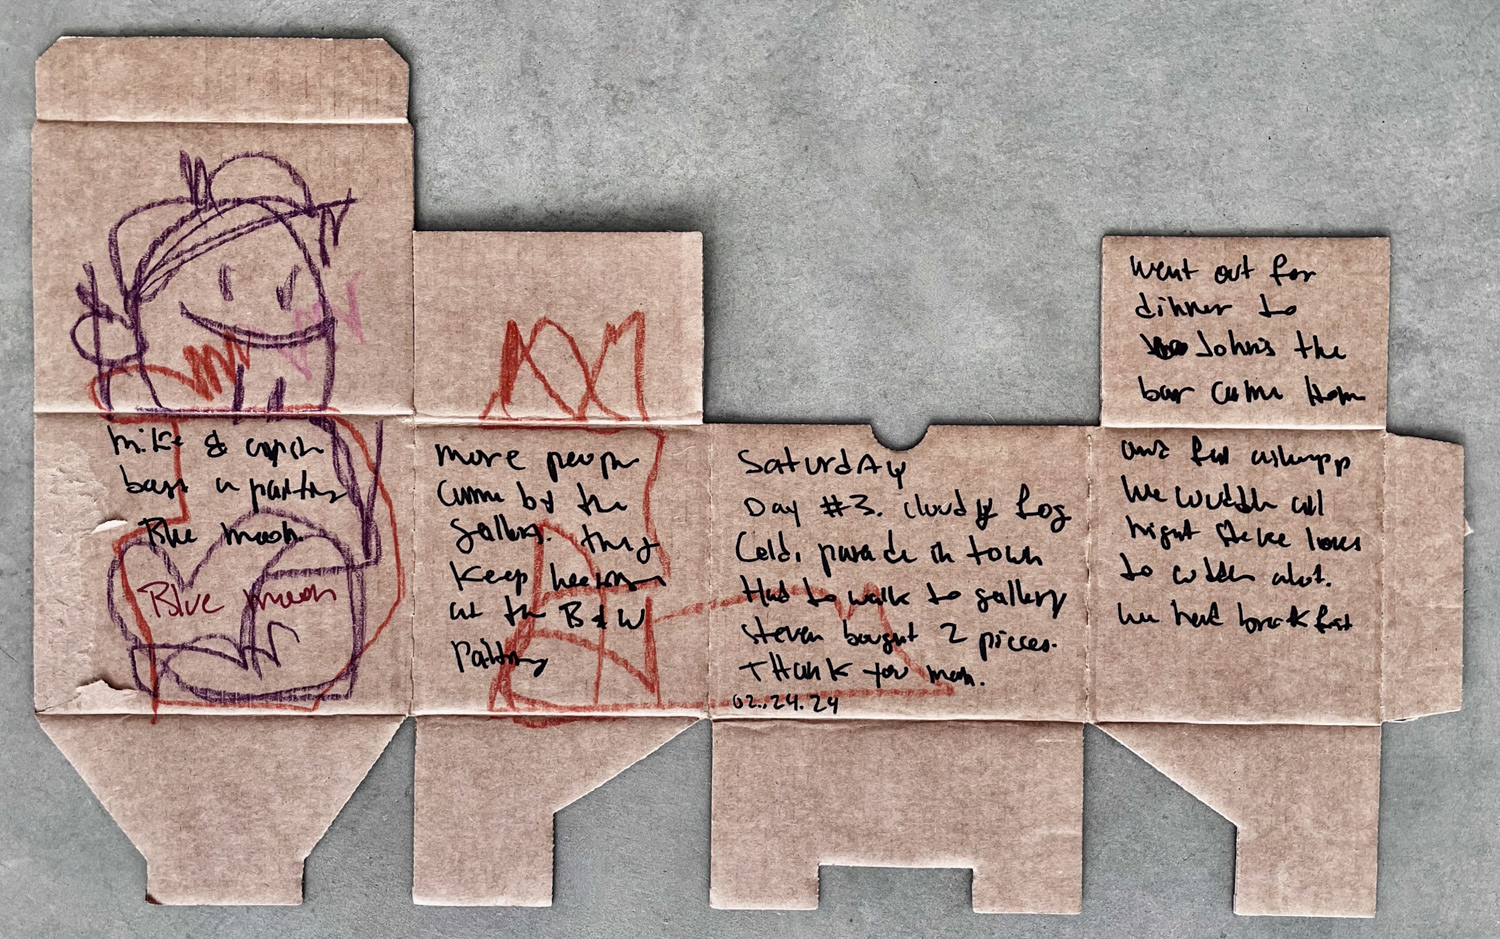 Mike &
a painting
Blue moon.
Blue moon
more people
came by the
gallery. they
Keep
at the B & W
Painting
Saturday
Day #3. cloudy fog
Cold, parade in town
Had to walk to gallery
Steven bought 2 pieces.
Thank you man.
02.24.24
Went out for
dinner to
John's the
bar came Home
and fell
We cuddle all
night Steve loves
to cuddle alot.
We had breakfast